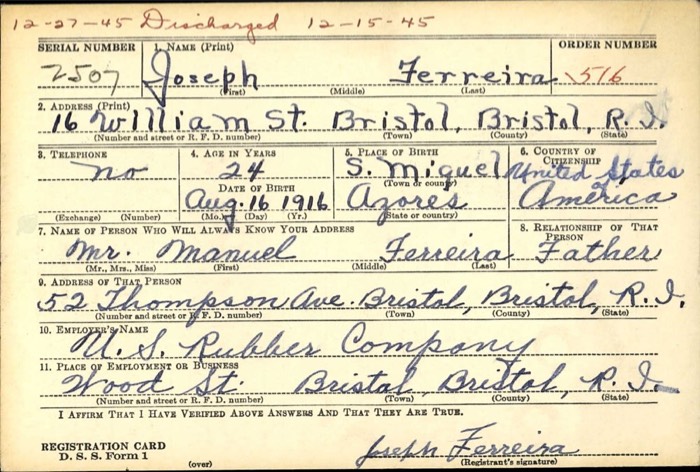 12-27-45 Discharged 12-15-45
SERIAL NUMBER 1. NAME (Print) ORDER NUMBER
2507 Joseph Ferreira 1516
(First) (Middle) (Last)
2. ADDRESS (Print)
16 William St. Bristol, Bristol, R.I.
(Number and street or R. F. D. number) (Town) (County) (State)
3. TELEPHONE 4. AGE IN YEARS 5. PLACE OF BIRTH 6. COUNTRY OF CITIZENSHIP
no 24 S. Miguel United States
DATE OF BIRTH (Town or county)
Aug. 16 1916 Azores America
(Exchange) (Number) (Mo.) (Day) (Yr.) (State or country)
7. NAME OF PERSON WHO WILL ALWAYS KNOW YOUR ADDRESS 8. RELATIONSHIP OF THAT PERSON
Mr. Manuel Ferreira Father
(Mr., Mrs., Miss) (First) (Middle) (Last)
9. ADDRESS OF THAT PERSON
52 Thompson Ave. Bristol, Bristol, R.I.
(Number and street or R. F. D. number) (Town) (County) (State)
10. EMPLOYER'S NAME
U.S. Rubber Company
11. PLACE OF EMPLOYMENT OR BUSINESS
Wood St. Bristol, Bristol, R.I.
(Number and street or R. F. D. number) (Town) (County) (State)
I AFFIRM THAT I HAVE VERIFIED ABOVE ANSWERS AND THAT THEY ARE TRUE.
REGISTRATION CARD
D. S. S. Form 1 Joseph Ferreira
(over) (Registrant's signature)